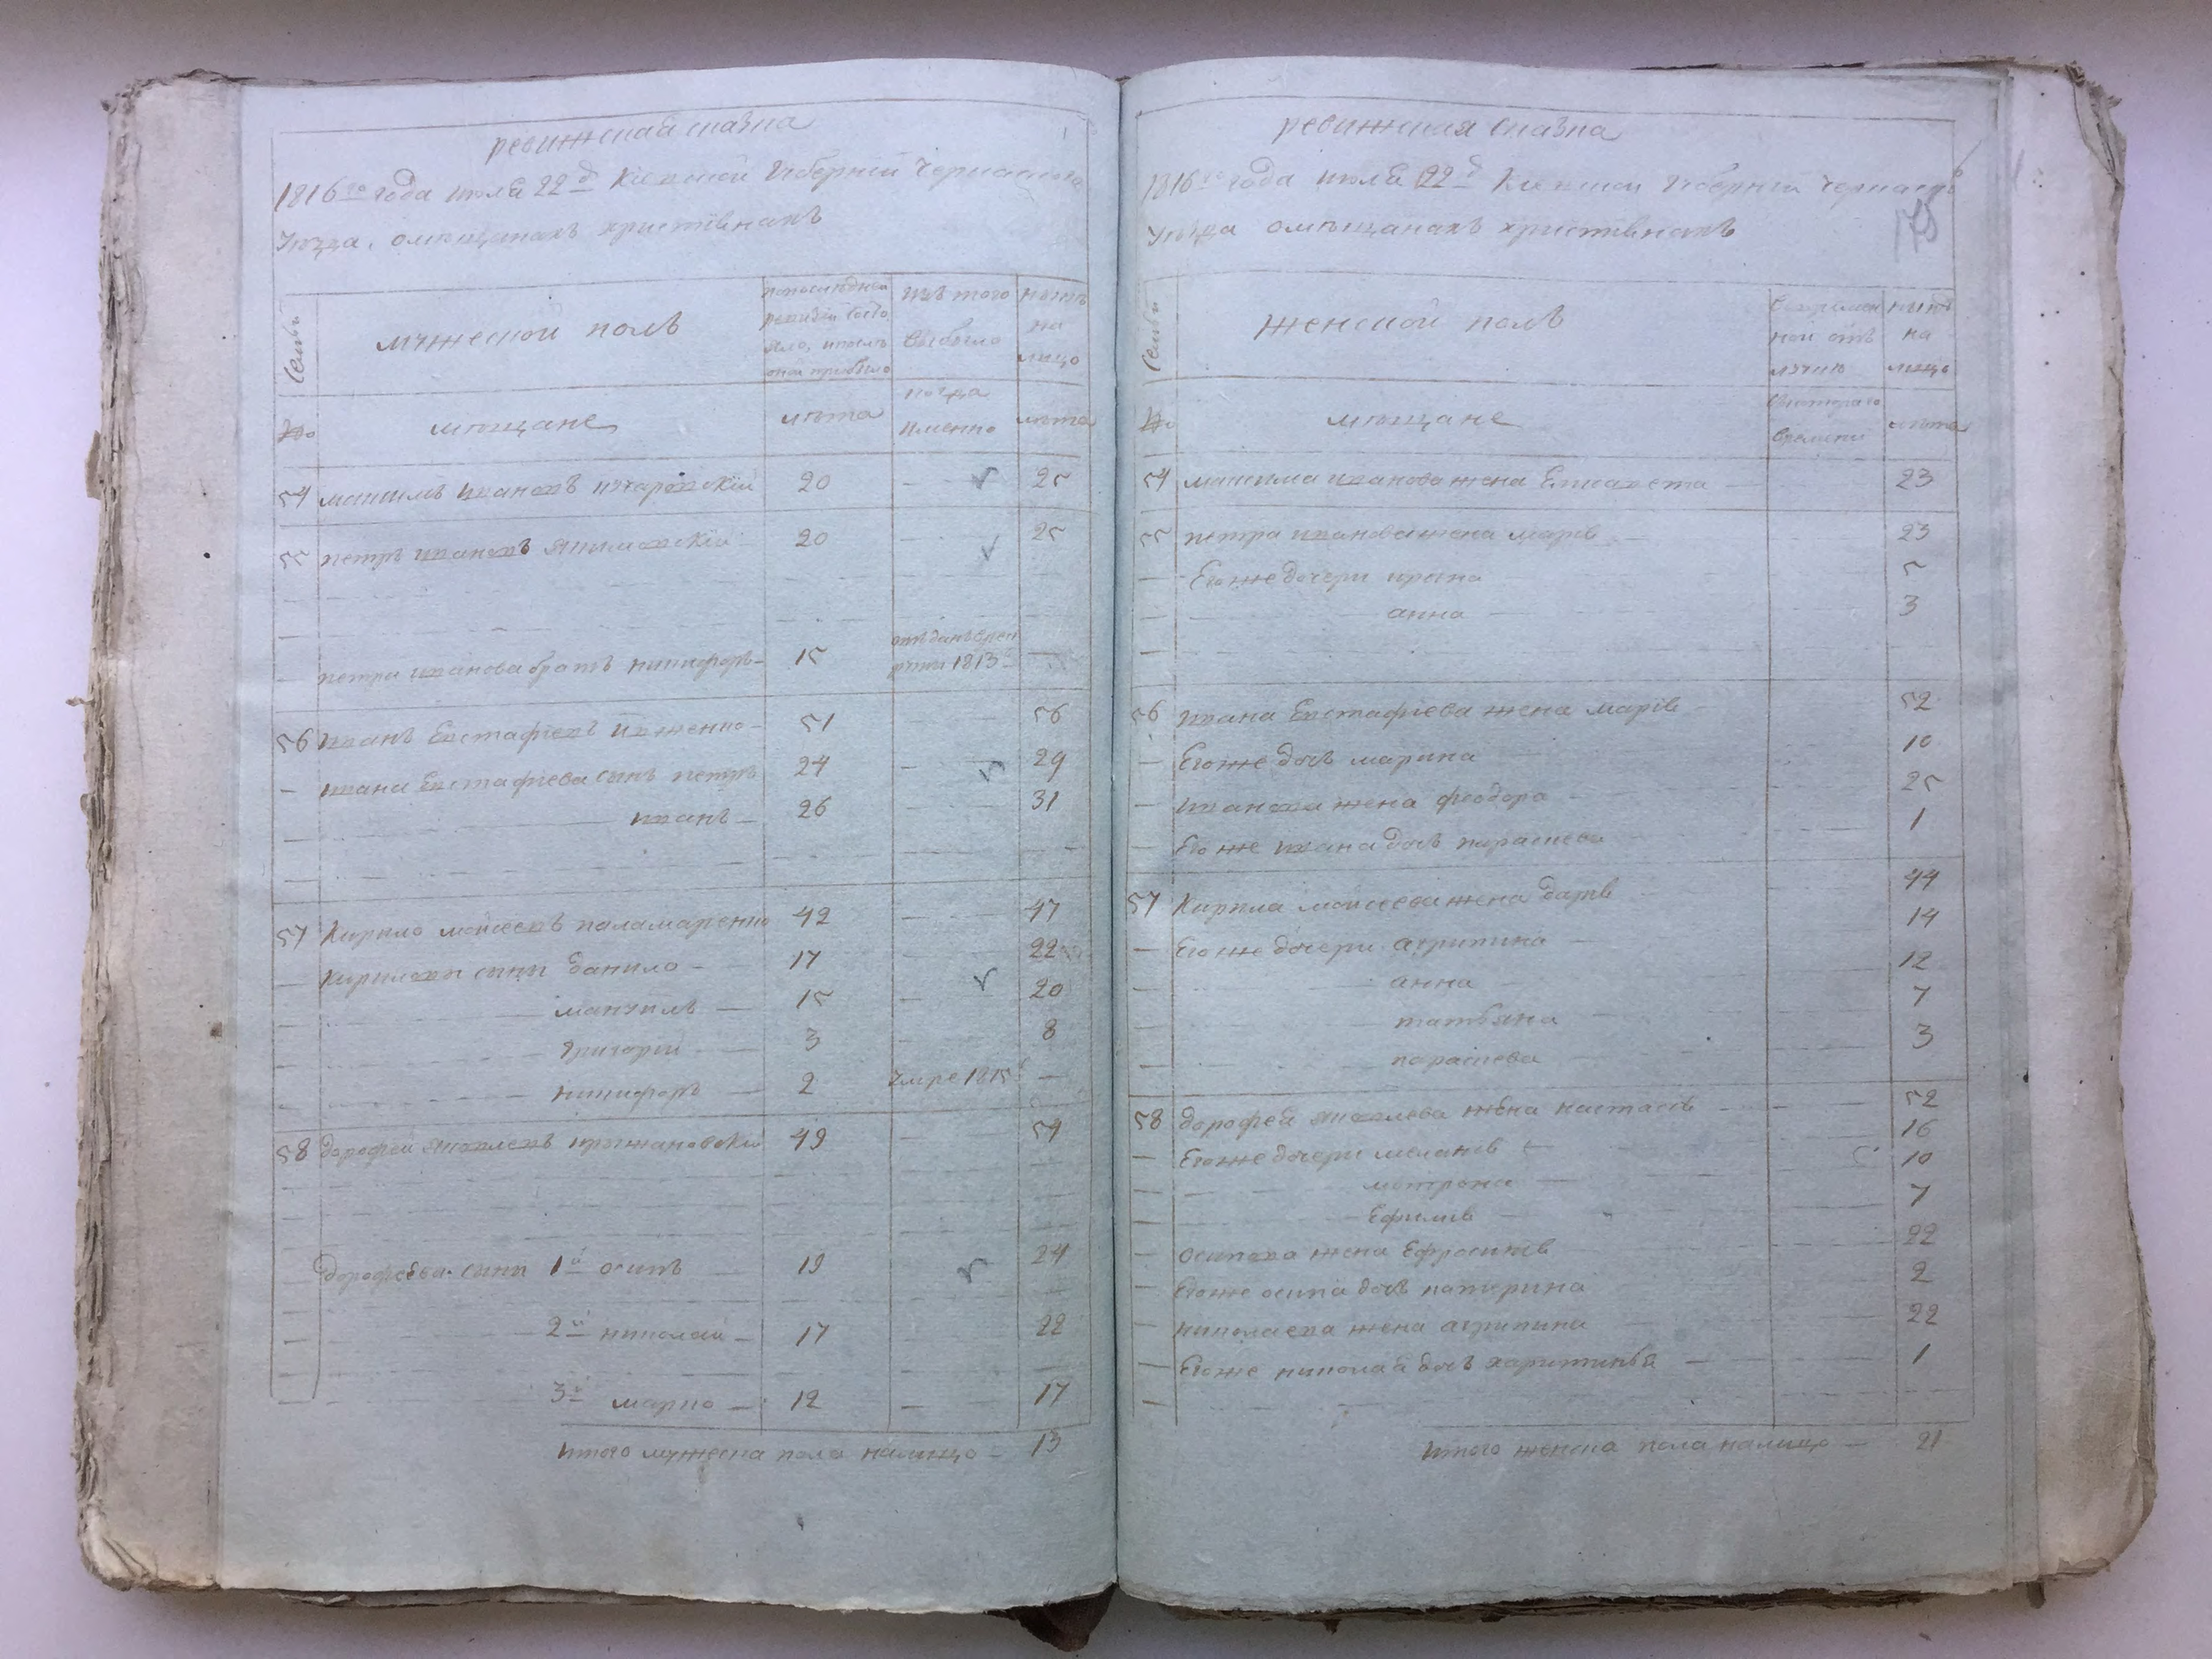 ревижская сказка
1816го года июля 22д Киевской Губернии Черкаского
уезда, о мещанах християнах
Семьи
мужеской полъ
попоследней
ревизии состо
яло, и после
оной прибыло
изъ того
выбыло
ныне
на
лицо
№
мещане
лета
когда
именно
лета
54 максимъ ивановъ 20 — 25
55 петръ ивановъ якимовский 20 — 25
петра иванова братъ никифоръ — 15 отъданъ врек
руты 1813 —
56 иванъ Евстафиевъ ивженко — 51 — 56
ивана Евстафиева сынъ петръ 24 — 29
иванъ — 26 — 31
57 Кирило мойсеевъ паламаренко 42 — 47
Кириловы сыны данило — 17 — 22
мануилъ — 15 — 20
григорий — 3 — 8
никифоръ — 2 умре 1815 —
58 дорофей яковлевъ крыжановский 49 — 54
дорофеева сыны 1й осипъ 19 — 24
2й николай — 17 — 22
3й марко — 12 — 17
итого мужеска пола налицо — 13
ревижская сказка
1816го года июля 22д Киевской Губернии Черкаскаго
уезда о мещанахъ християнахъ
175
Семьи
женской полъ
Вовремен
ной отъ
лучке
ныне
на
лицо
№
мещане
скотораго
времени
лета
54 максима иванова жена Елисавета — 23
55 петра иванова жена мария 23
— Его же дочери ирина 5
— анна — 3
56 ивана Евстафиева жена мария 52
— Его же дочь марина 10
— иванова жена феодора 25
— Его же ивана дочь параскева 1
57 Кирила мойсеева жена дария 44
— Его же дочери агрипина 14
— анна — 12
татьяна 7
— параскева 3
58 дорофея яковлева жена настасия 52
— Его же дочери мелания 16
— мотрона 10
— Ефимия 7
— осипова жена Ефросиния 22
— Его же осипа дочь катерина 2
— николаева жена агрипина 22
— Его же николая дочь харитинья — 1
итого женска пола налицо — 21